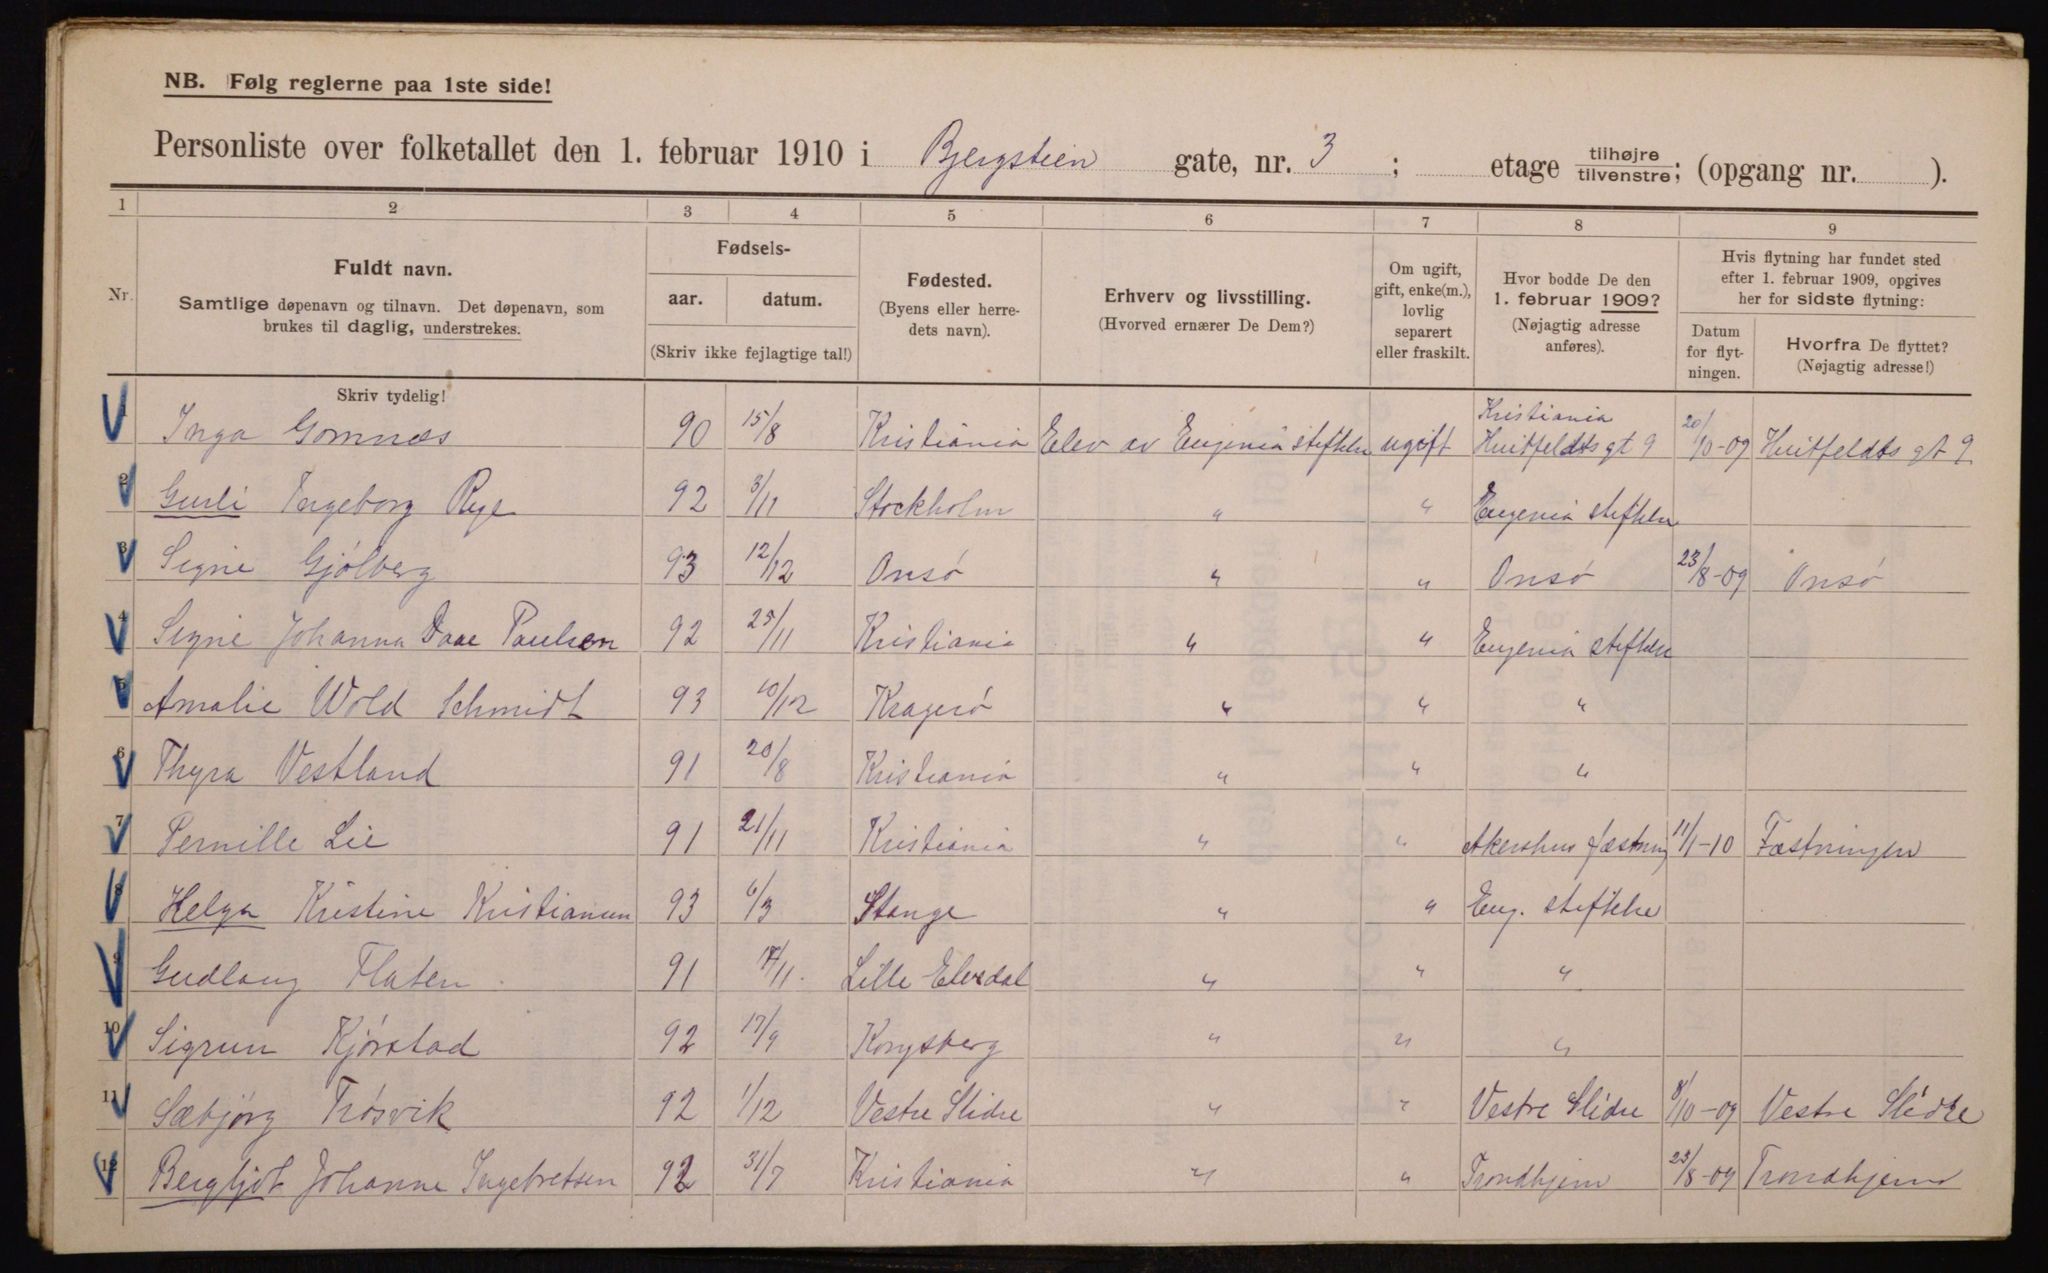 NB. Følg reglerne paa 1ste side!
Personliste over folketallet den 1. februar 1910 i Bjergstien gate, nr. 3 ; etage tilhøjre tilvenstre; (opgang nr. ).
1 2 3 4 5 6 7 8 9
Nr.
Fuldt navn.
Samtlige døpenavn og tilnavn. Det døpenavn, som
brukes til daglig, understrekes.
Skriv tydelig!
Fødsels-
aar. datum.
(Skriv ikke fejlagtige tal!)
Fødested.
(Byens eller herre-
dets navn).
Erhverv og livsstilling.
(Hvorved ernærer De Dem?)
Om ugift,
gift, enke(m.),
lovlig
separert
eller fraskilt.
Hvor bodde De den
1. februar 1909?
(Nøjagtig adresse
anføres).
Hvis flytning har fundet sted
efter 1. februar 1909, opgives
her for sidste flytning:
Datum
for flyt-
ningen.
Hvorfra De flyttet?
(Nøjagtig adresse!)
1 Inga Gomnæs 90 15/8 Kristiania Elev av Eugenia stiftelse ugift Kristiania Huitfeldts gt 9 20/10-09 Huitfeldts gt 9
2 Gurli Ingeborg Rye 92 3/11 Stockholm " " Eugenia stiftelse
3 Signe Gjølberg 93 12/12 Onsø " " Onsø 23/8-09 Onsø
4 Signe Johanna Daae Paulsen 92 25/11 Kristiania " " Eugenia stiftelse
5 Amalie Wold Schmidt 93 10/12 Kragerø " " "
6 Thyra Vestland 91 20/8 Kristiania " " "
7 Pernille Lie 91 21/11 Kristiania " " Akershus fæstning 11/1-10 Fæstningen
8 Helga Kristine Kristiansen 93 6/3 Stange " " Eug. stiftelse
9 Gudlaug Flaten 91 /11 Lille Elvedal " " "
10 Sigrun Kjørstad 92 17/9 Kongsberg " " "
11 Sæbjørg Trøsvik 92 1/12 Vestre Slidre " " Vestre Slidre 8/10-09 Vestre Slidre
12 Bergljot Johanne Ingebretsen 92 31/7 Kristiania " " Trondhjem 23/8-09 Trondhjem